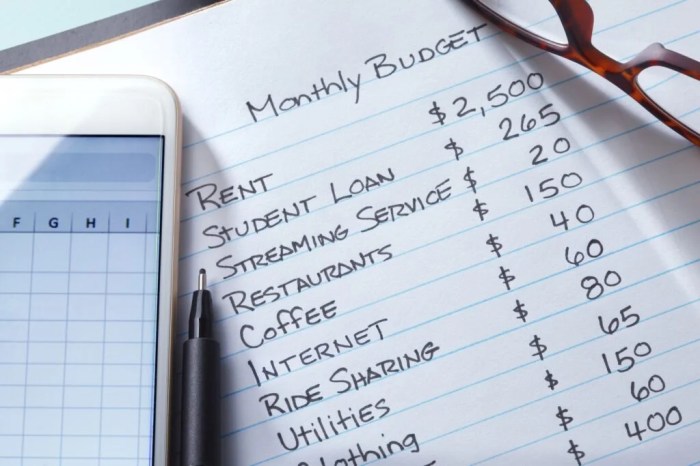 Monthly BUDGET
RENT $2,500
STUDENT LOAN $ 265
STREAMING SERVICE $ 20
RESTAURANTS $ 150
Coffee $ 40
INTERNET $ 60
RIDE SHARING $ 80
Utilities $ 65
Clothing $ 150
$ 60
$ 400
F G H I